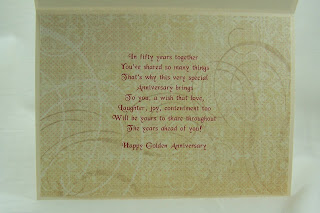 In fifty years together
You've shared so many things
That's why this very special
Anniversary brings
To you, a wish that love,
Laughter, joy, contentment too
Will be yours to share throughout
The years ahead of you!
Happy Golden Anniversary